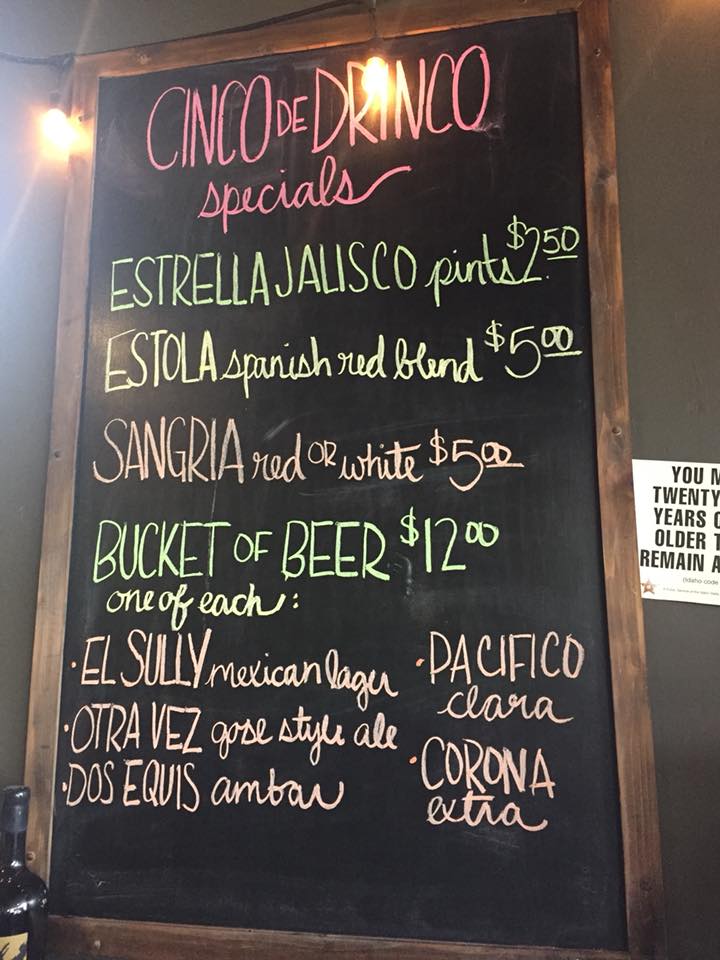 CINCO DE DRINCO
specials
ESTRELLA JALISCO pints $2.50
ESTOLA spanish red blend $5.00
SANGRIA red OR white $5.00
BUCKET OF BEER $12.00
one of each:
• EL SULLY mexican lager
• OTRA VEZ gose style ale
• DOS EQUIS ambar
• PACIFICO
clara
• CORONA
extra
YOU M
TWENTY
YEARS O
OLDER T
REMAIN A
(Idaho code